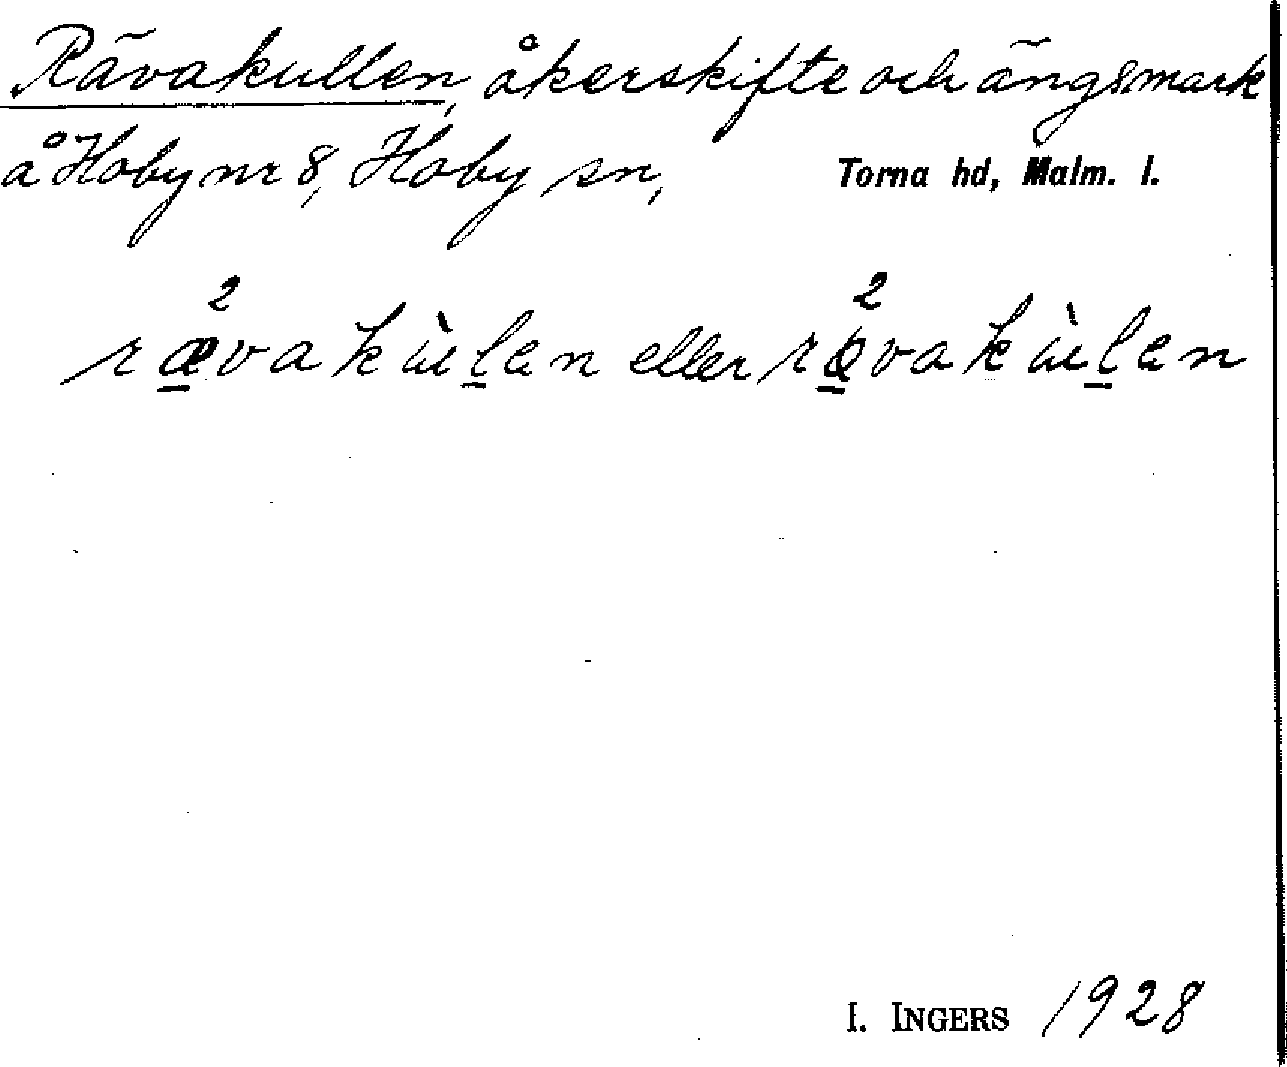 Rävakullen, åkerskifte och ängsmark
å Hoby nr 8, Hoby sn, Torna hd, Malm. l.
ræ̱²vakùḻen eller rö̱²vakùḻen
I. INGERS 1928